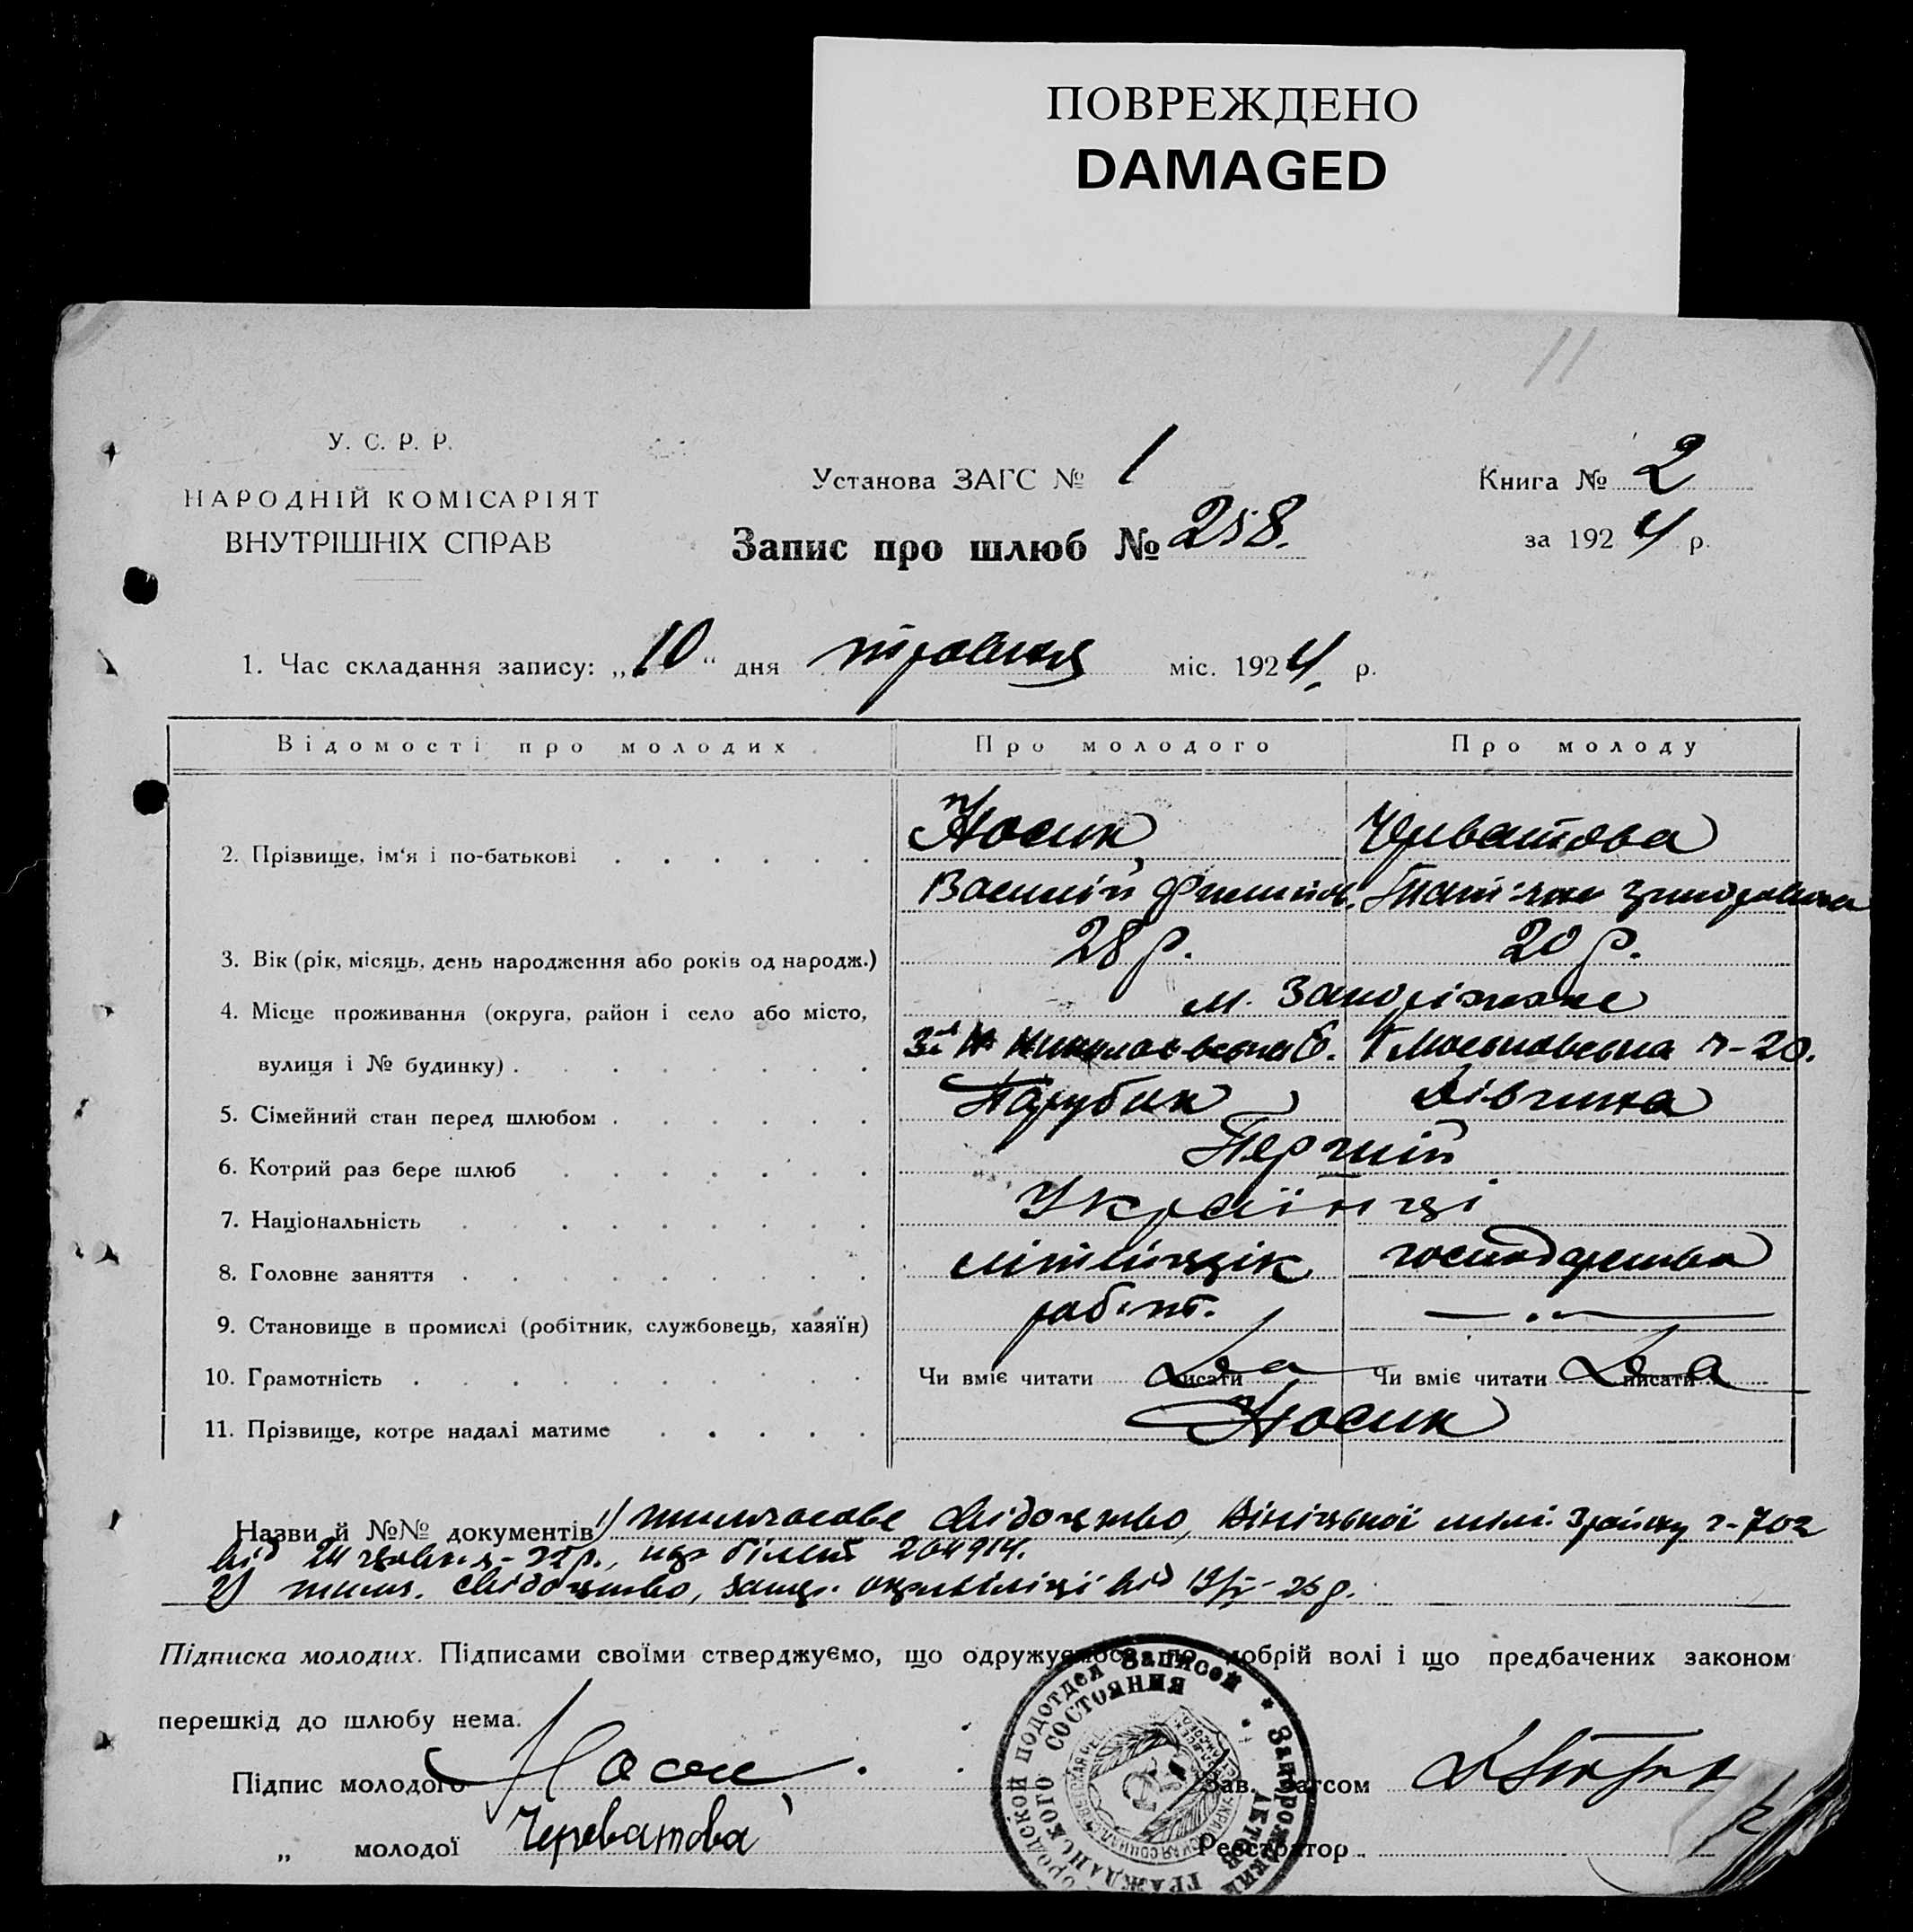 ПОВРЕЖДЕНО
DAMAGED
11
У. С. Р. Р.
НАРОДНІЙ КОМІСАРІЯТ
ВНУТРІШНІХ СПРАВ
Установа ЗАГС № 1
Запис про шлюб № 258.
Книга № 2
за 1924 р.
1. Час складання запису: „10“ дня травня міс. 1924 р.
Відомості про молодих Про молодого Про молоду
2. Прізвище, ім‘я і по-батькові Носик Черватова
Василій Филипов.
3. Вік (рік, місяць, день народження або років од народж.) 28 р. 20 р.
4. Місце проживання (округа, район і село або місто, м. Запоріжже
вулиця і № будинку) ч-20.
5. Сімейний стан перед шлюбом Парубик Дівчина
6. Котрий раз бере шлюб Перший
7. Національність Українці
8. Головне заняття господарства
9. Становище в промислі (робітник, службовець, хазяїн) робітн.
10. Грамотність Чи вміє читати писати Да Чи вміє читати писати Да
11. Прізвище, котре надалі матиме Носик
Назви й №№ документів 1) тимчасове свідоцтво, міліц. 3 району ч-702
від 24 р., білет 264914.
2) тимч. свідоцтво, від
Підписка молодих. Підписами своїми стверджуємо, що одружуємося по добрій волі і що предбачених законом
перешкід до шлюбу нема.
Підпис молодого Носик
Зав. Загсом
„ молодої Череватова
Реєстратор
городской подотдел Записей * Запорожский
ГРАЖДАНСКОГО СОСТОЯНИЯ